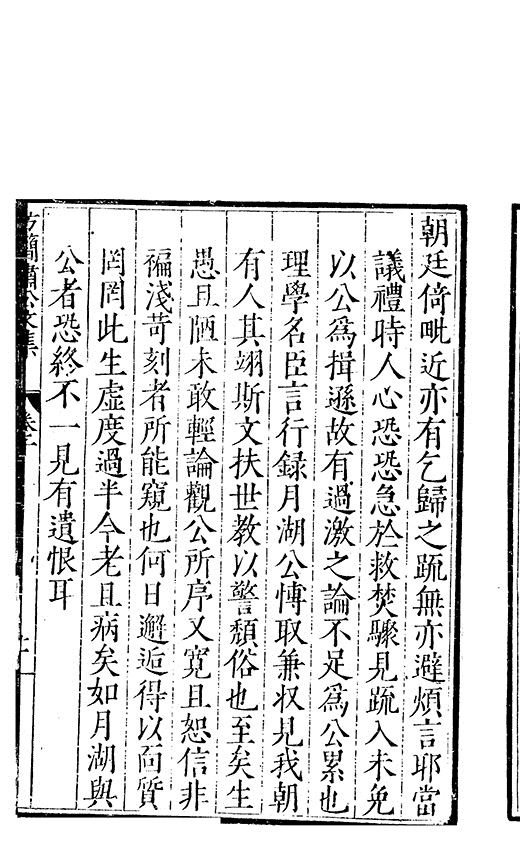 朝廷倚毗近亦有乞歸之䟽無亦避煩言耶當
議禮時人心恐恐急於救焚驟見䟽入未免
以公爲揖遜故有過激之論不足爲公累也
理學名臣言行録月湖公慱取兼収見我朝
有人其翊斯文扶世教以警頹俗也至矣生
愚且陋未敢輕論觀公所序又寛且恕信非
褊淺苛刻者所能窺也何日邂逅得以面質
罔罔此生虚度過半今老且病矣如月湖與
公者恐終不一見有遺恨耳
方簡肅公文集